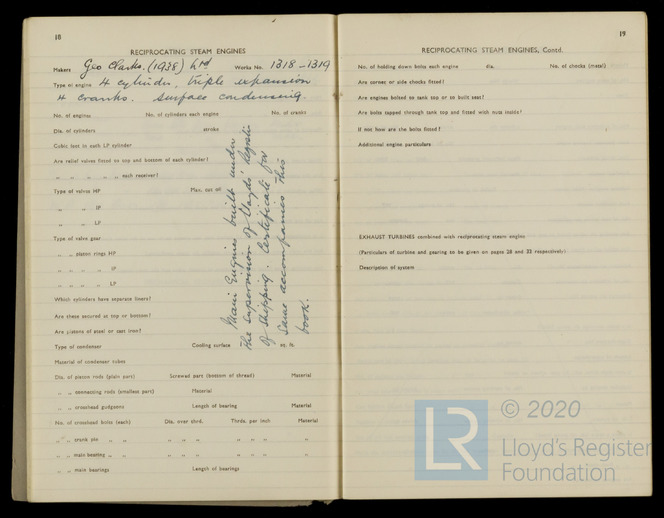 18
RECIPROCATING STEAM ENGINES
Makers Geo Clarks. (1938) Ltd Works No. 1318-1319
Type of engine 4 cylinder, triple expansion
4 cranks. surface condensing.
No. of engines No. of cylinders each engine No. of cranks
Dia. of cylinders stroke
Cubic feet in each LP cylinder
Are relief valves fitted to top and bottom of each cylinder?
,, ,, ,, ,, ,, each receiver?
Type of valves HP Max. cut off
,, ,, IP
,, ,, LP
Type of valve gear
,, ,, piston rings HP
,, ,, ,, ,, IP
,, ,, ,, ,, LP
Which cylinders have separate liners?
Are these secured at top or bottom?
Are pistons of steel or cast iron?
Type of condenser Cooling surface sq. ft.
Material of condenser tubes
Dia. of piston rods (plain part) Screwed part (bottom of thread) Material
,, ,, connecting rods (smallest part) Material
,, ,, crosshead gudgeons Length of bearing Material
No. of crosshead bolts (each) Dia. over thrd. Thrds. per inch Material
,, ,, crank pin ,, ,, ,, ,, ,, ,, ,, ,, ,,
,, ,, main bearing ,, ,, ,, ,, ,, ,, ,, ,, ,,
,, ,, main bearings Length of bearings
Main Engines built under
the supervision of Lloyds' Register
of Shipping. Certificate for
same accompanies this
book.
19
RECIPROCATING STEAM ENGINES, Contd.
No. of holding down bolts each engine dia. No. of chocks (metal)
Are corner or side chocks fitted?
Are engines bolted to tank top or to built seat?
Are bolts tapped through tank top and fitted with nuts inside?
If not how are the bolts fitted?
Additional engine particulars
EXHAUST TURBINES combined with reciprocating steam engine
(Particulars of turbine and gearing to be given on pages 28 and 33 respectively)
Description of system
LR
© 2020
Lloyd's Register
Foundation